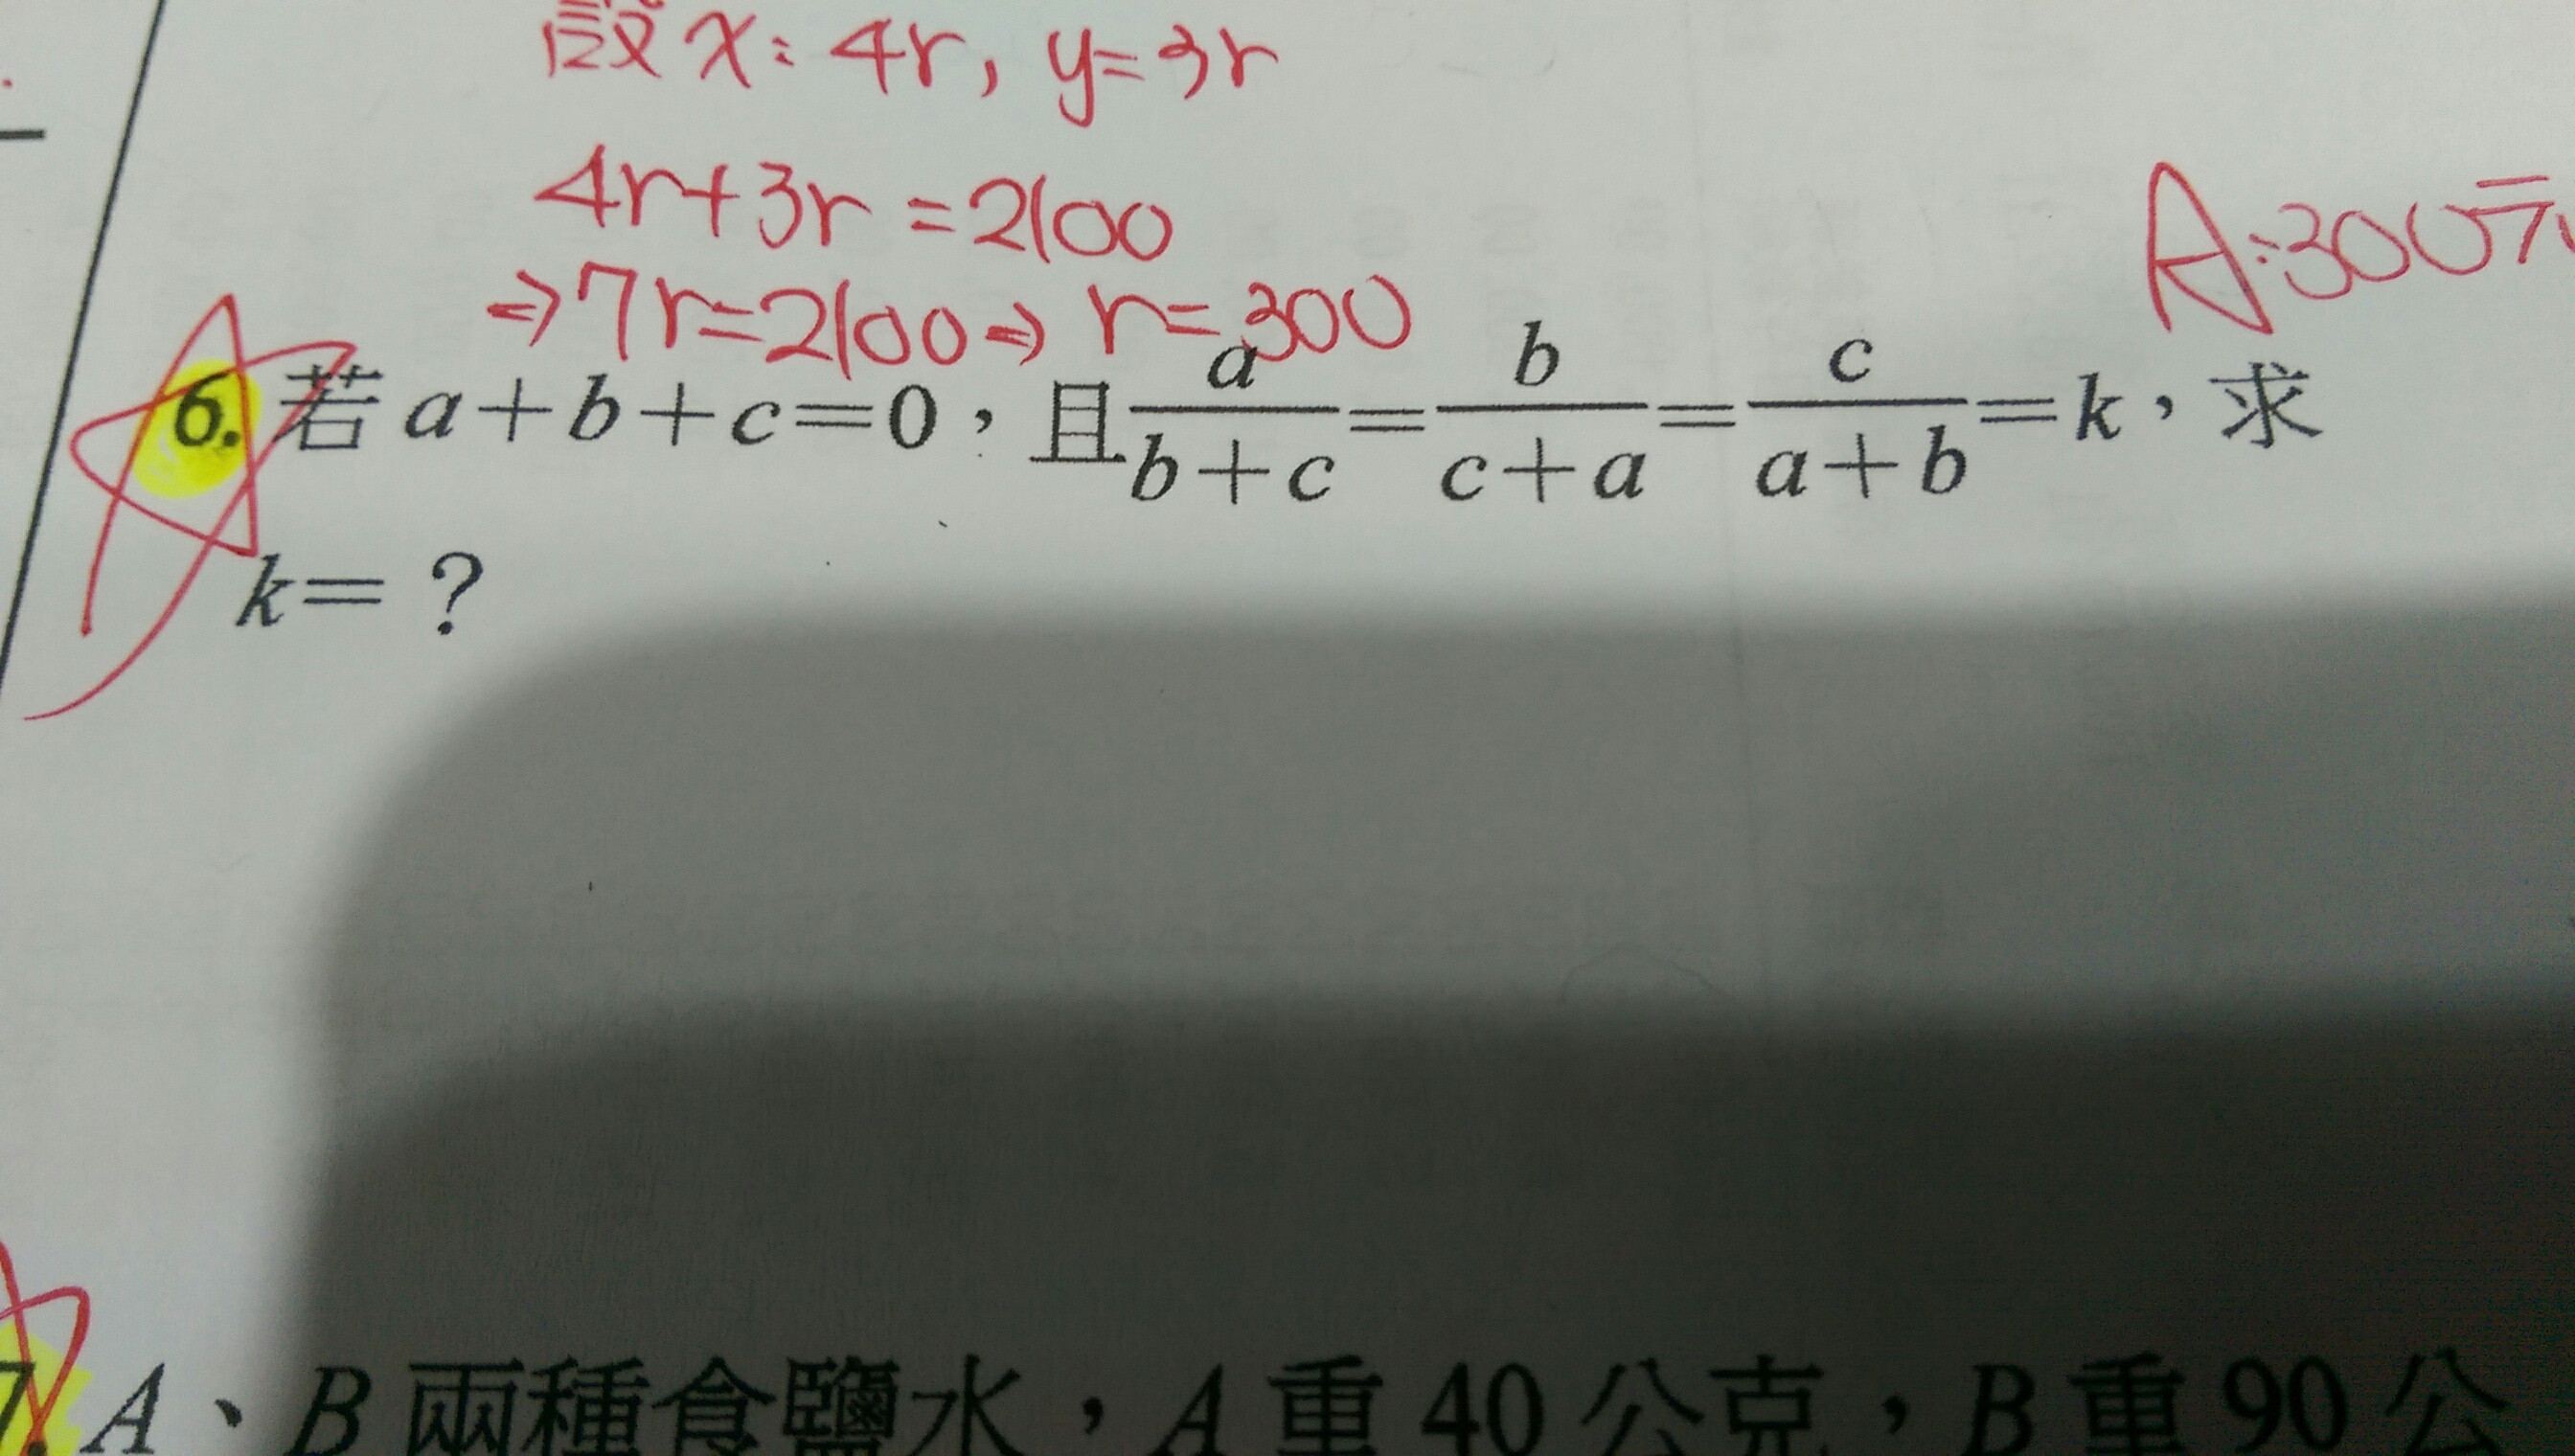 設 x = 4r, y = 3r
4r+3r = 2100
⇒ 7r=2100 ⇒ r=300
A:300元
6. 若 a+b+c=0，且 a/(b+c) = b/(c+a) = c/(a+b) = k，求
k=？
7. A、B 兩種食鹽水，A 重 40 公克，B 重 90 公